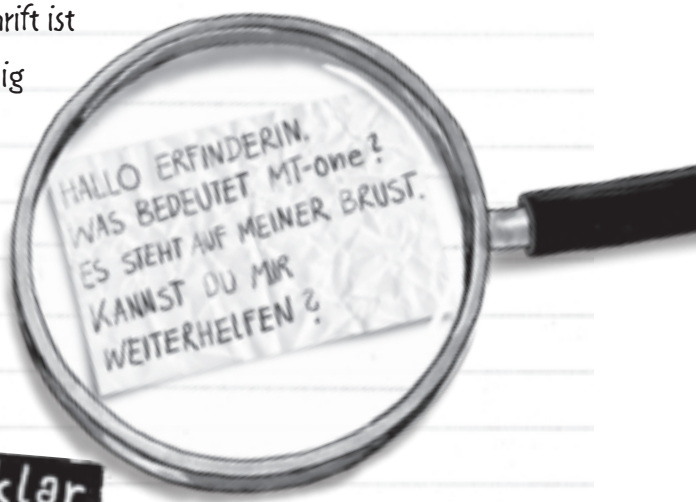 rift ist
ig
HALLO ERFINDERIN.
WAS BEDEUTET MT-one?
ES STEHT AUF MEINER BRUST.
KANNST DU MIR
WEITERHELFEN?
klar